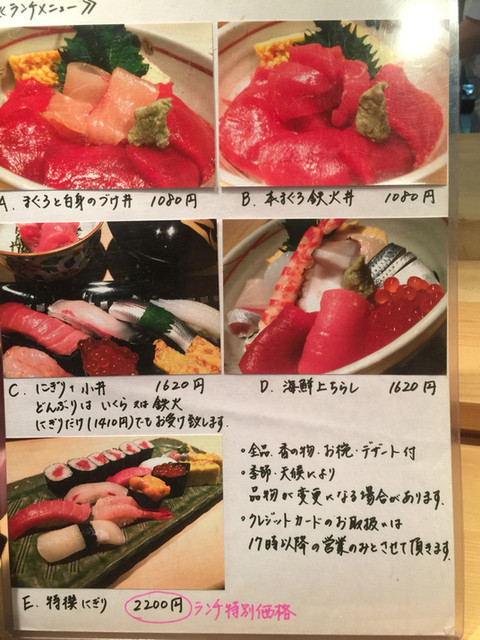 ≪ランチメニュー≫
A. まぐろと白身のづけ丼 1080円
B. 本まぐろ鉄火丼 1080円
C. にぎり+小丼 1620円
どんぶりは いくら 又は 鉄火
にぎりだけ(1410円)でもお受け致します。
D. 海鮮上ちらし 1620円
・全品 香の物・お椀・デザート付
・季節・天候により
品物が変更になる場合があります。
・クレジットカードのお取扱いは
17時以降の営業のみとさせて頂きます。
E. 特撰にぎり 2200円 ランチ特別価格